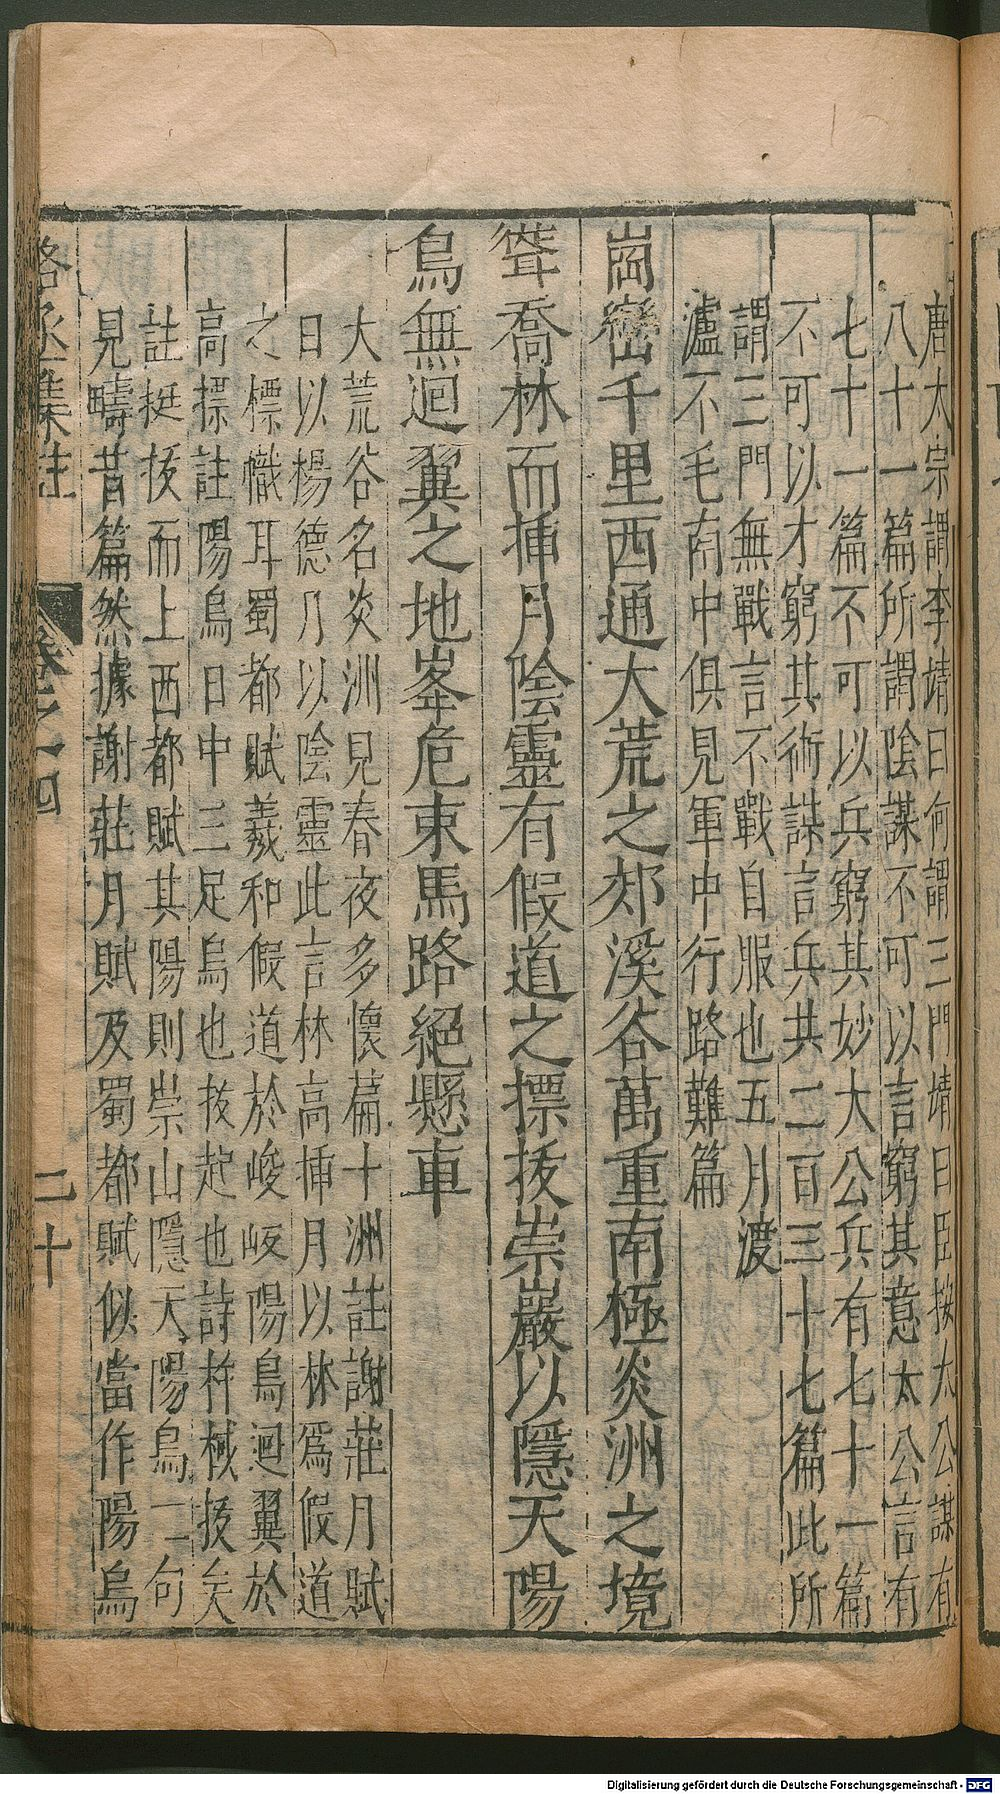 唐太宗謂李靖曰何謂三門靖曰臣按太公謀有
八十一篇所謂陰謀不可以言窮其意太公言有
七十一篇不可以兵窮其妙大公兵有七十一篇
不可以才窮其術謀言兵共二百三十七篇此所
謂三門無戰言不戰自服也五月渡
瀘不毛南中俱見軍中行路難篇
崗巒千里西通大荒之郊溪谷萬重南極炎洲之境
聳喬林而挿月陰靈有假道之摽拔崇巖以隱天陽
烏無迴翼之地峯危束馬路絕懸車
大荒谷名炎洲見春夜多懷篇十洲註謝莊月賦
日以楊德乃以陰靈此言林高挿月以林爲假道
之標幟耳蜀都賦羲和假道於峻岐陽烏迴翼於
高摽註陽烏日中三足烏也拔起也詩柞棫拔矣
註挺拔而上西都賦其陽則崇山隱天陽烏一句
見疇昔篇然據謝莊月賦及蜀都賦似當作陽烏
駱丞集註
卷之四
二十
Digitalisierung gefördert durch die Deutsche Forschungsgemeinschaft - DFG